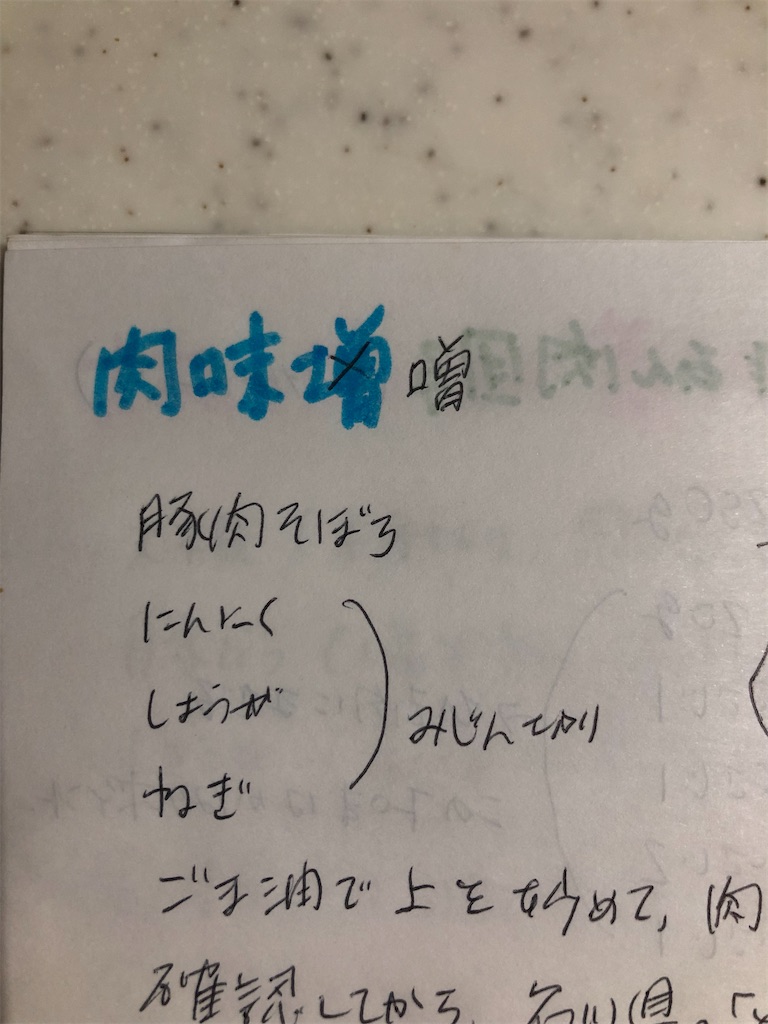 肉味増 噌
豚肉そぼろ
にんにく
しょうが
ねぎ
みじん切り
ごま油で上を炒めて、肉
確認してから、石川県の